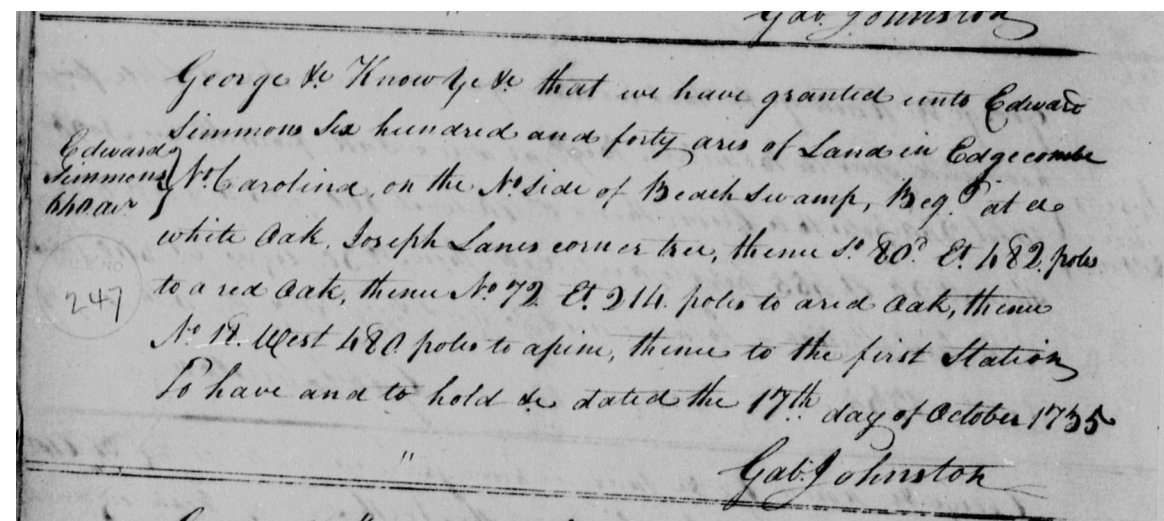 Gab. Johnston
George &c Know Ye &c that we have granted unto Edward
Simmons Six hundred and forty acres of Land in Edgecombe
Edward
Simmons
640 acr.
No. Carolina, on the No. Side of Beach Swamp, Beg.g at a
white Oak, Joseph Lanes corner tree, thence So. 80d. Et. 482 poles
247
to a red Oak, thence No. 72 Et. 214 poles to a red Oak, thence
No. 18. West 480 poles to a pine, thence to the first Station
To have and to hold &c dated the 17th day of October 1735
"
Gab. Johnston